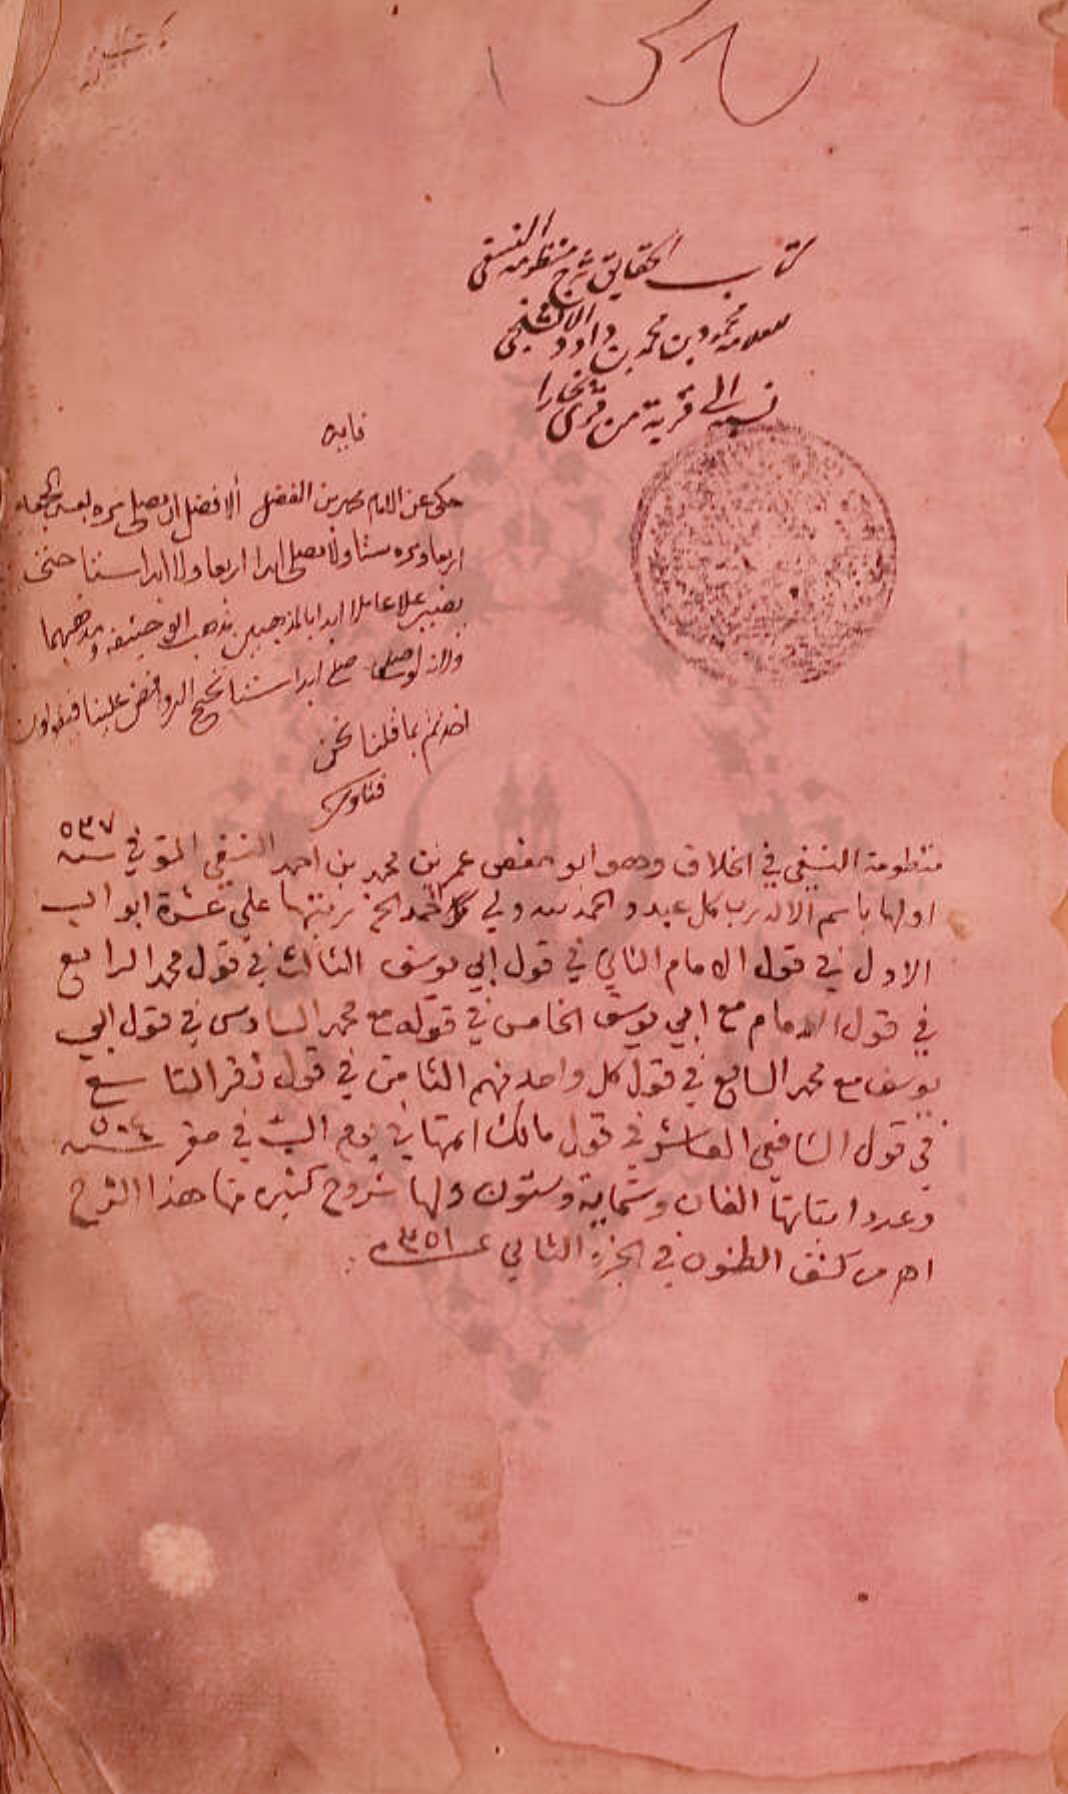 كتاب الحقايق شرح منظومة النسفي
محمود بن محمد بن داود الافشنجي
نسبة الى قرية من قرى بخارا
فايدة
حكى عن الامام محمد بن الفضل الافضل ان يصلي مره بعد الجمعة
اربعا ومره ستا ولا يصلي ابدا اربعا ولا ابدا ستا حتى
يصير عاملا ابدا بالمذهبين مذهب ابي حنيفه ومذهبهما
ولانه لو صلى ابدا ستا تحتج الروافض علينا فيقولون
اخذتم بما قلنا نحن
فتاوى
منظومة النسفي في الخلاف وهو ابو حفص عمر بن محمد بن احمد النسفي المتوفي سنة ٥٣٧
اولها باسم الاله رب كل عبد والحمد لله ولي الحمد الخ رتبتها على عشرة ابواب
الاول في قول الامام الثاني في قول ابي يوسف الثالث في قول محمد الرابع
في قول الامام مع ابي يوسف الخامس في قوله مع محمد السادس في قول ابي
يوسف مع محمد السابع في قول كل واحد منهم الثامن في قول زفر التاسع
في قول الشافعي العاشر في قول مالك اتمها في يوم السبت في صفر سنة ٥٠٤
وعدد ابياتها الفان وستماية وستون ولها شروح كثيرة منها هذا الشرح
اهـ من كشف الظنون في الجزء الثاني ص ٣٥١